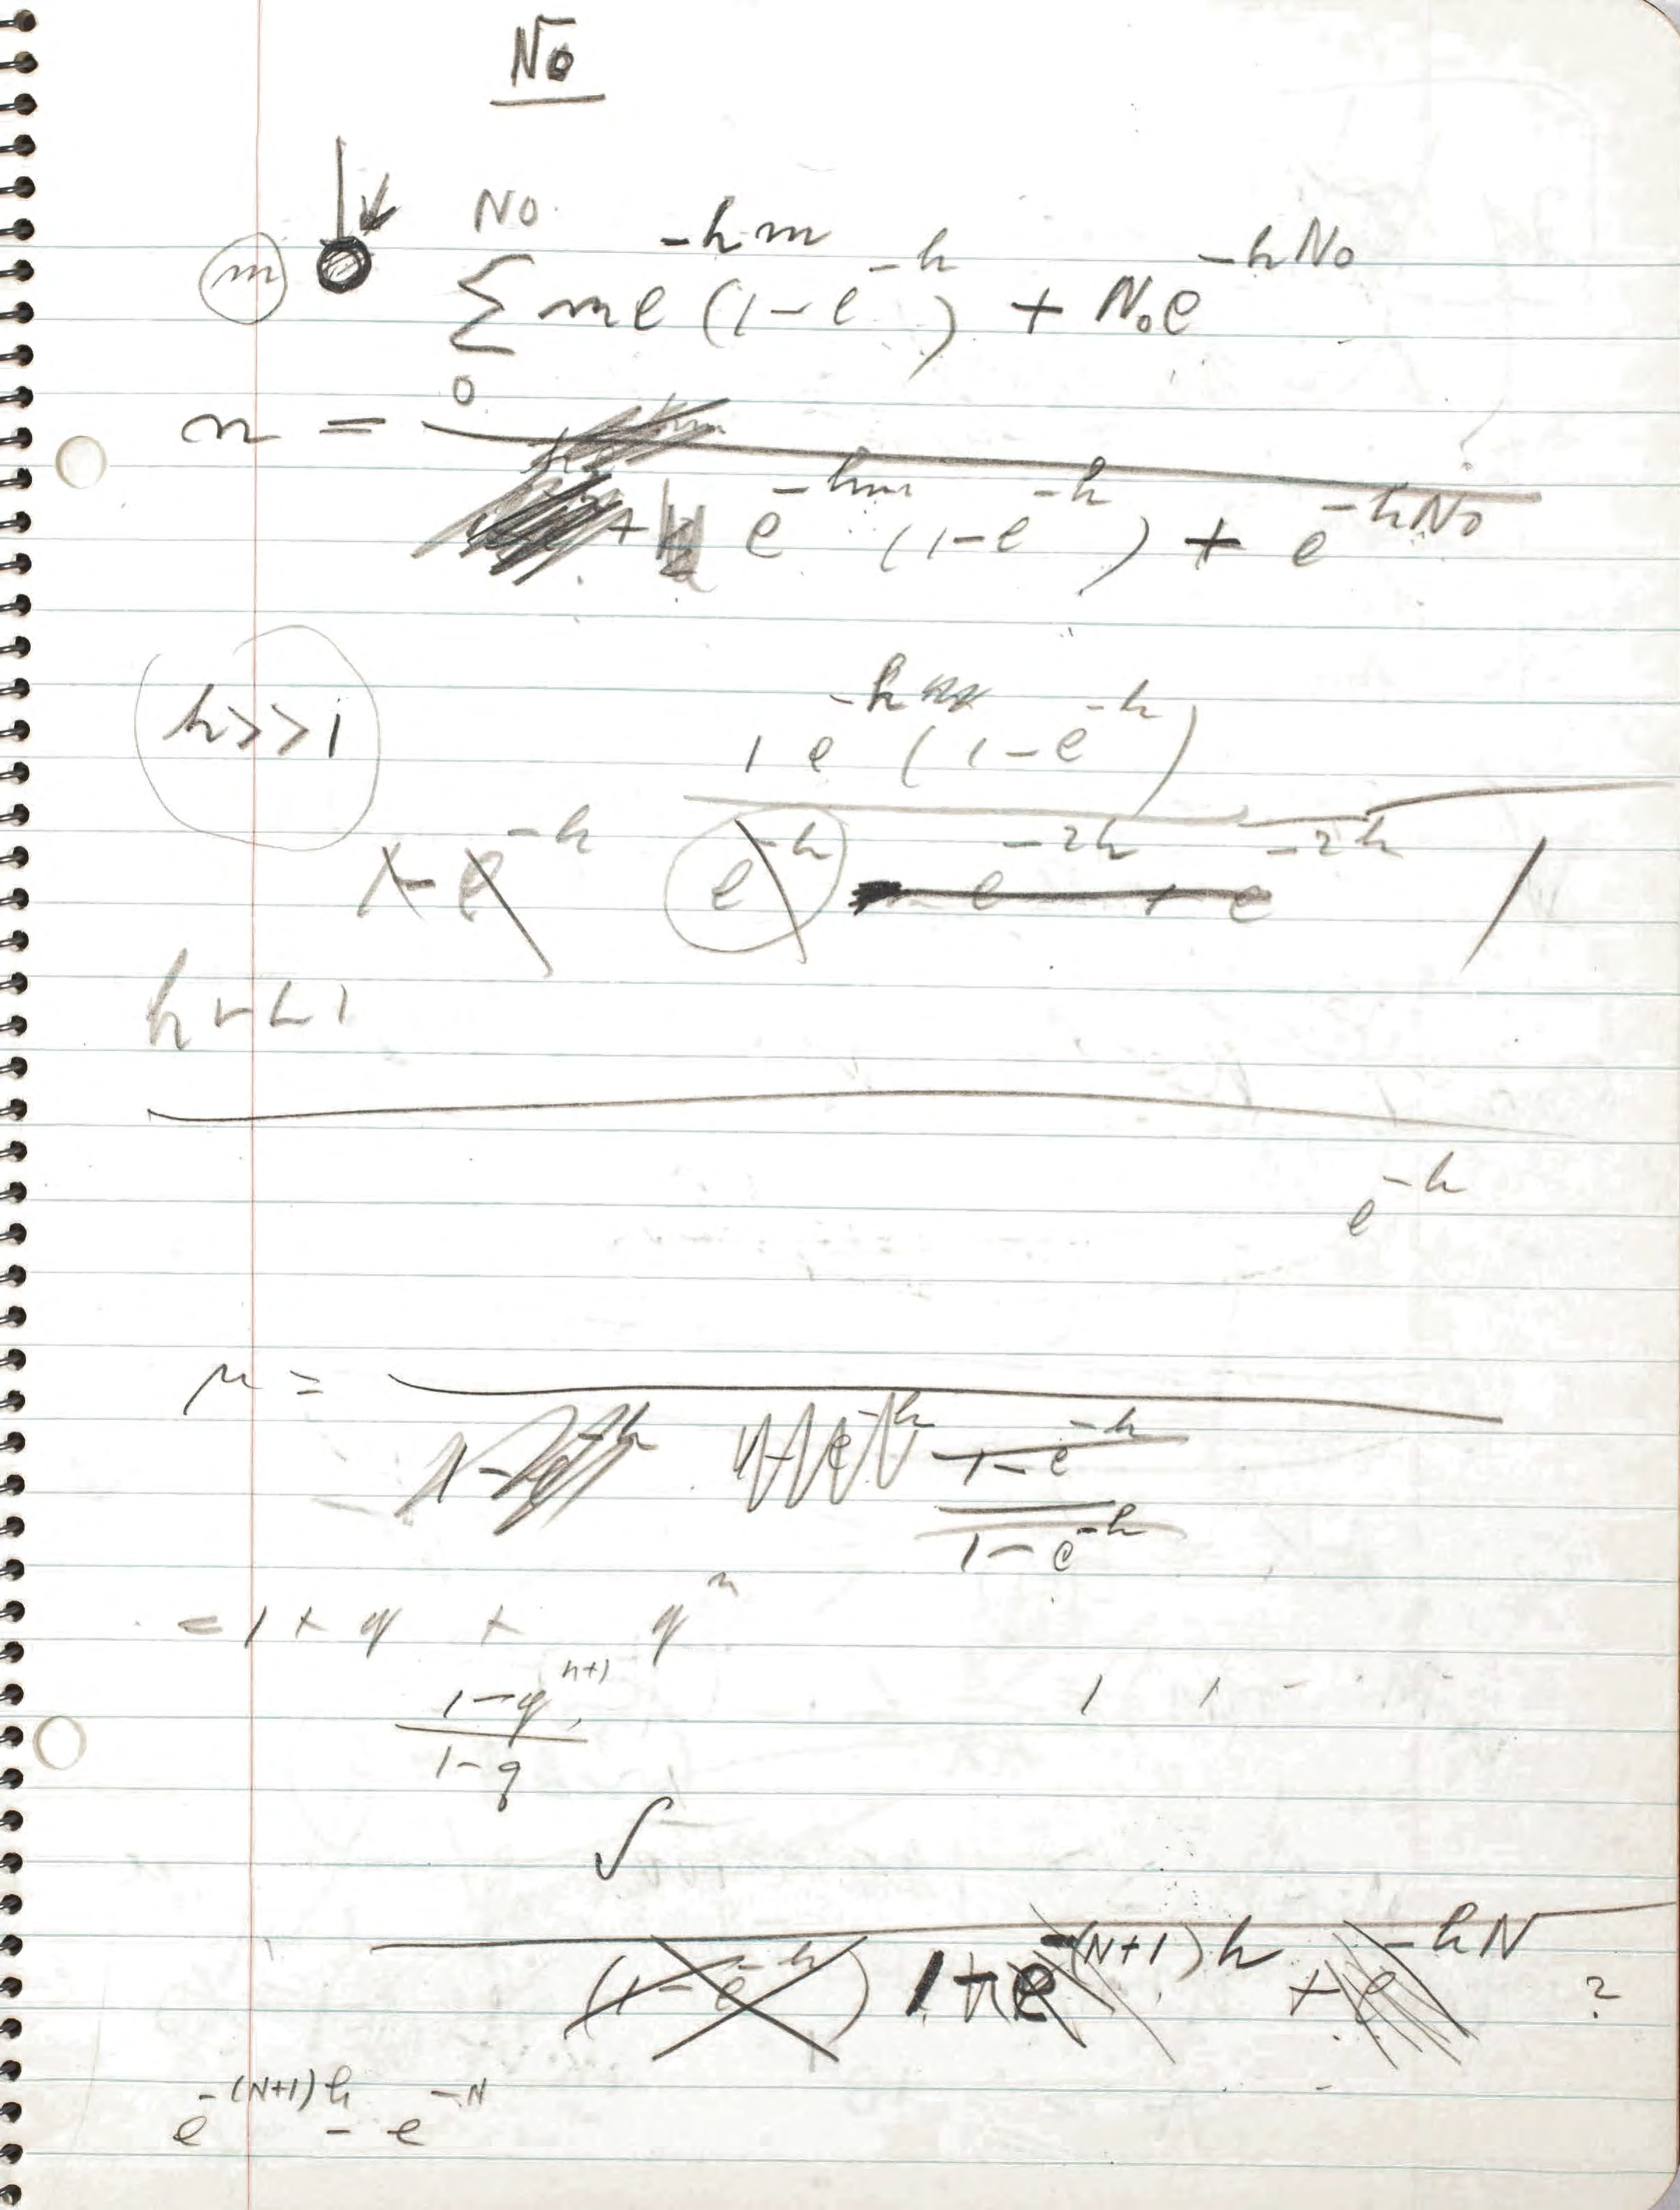 No
m
No
Σ m e^{-hm} (1-e^{-h}) + N₀e^{-hNo}
0
n =
+ e^{-hm} (1-e^{-h}) + e^{-hNo}
h>>1
1 e^{-h} (1-e^{-h})
1-e^{-h} e^{-h} - e^{-2h} + e^{-2h} 1
h << 1
e^{-h}
n =
1-e^{-h}
1-e^{-h}
= 1 + q + q^n
1-q^{n+1}
1-q
1 1 -
∫
(1-e^{-h}) 1-e^{-(N+1)h} + e^{-hN} ?
e^{-(N+1)h} - e^{-N}